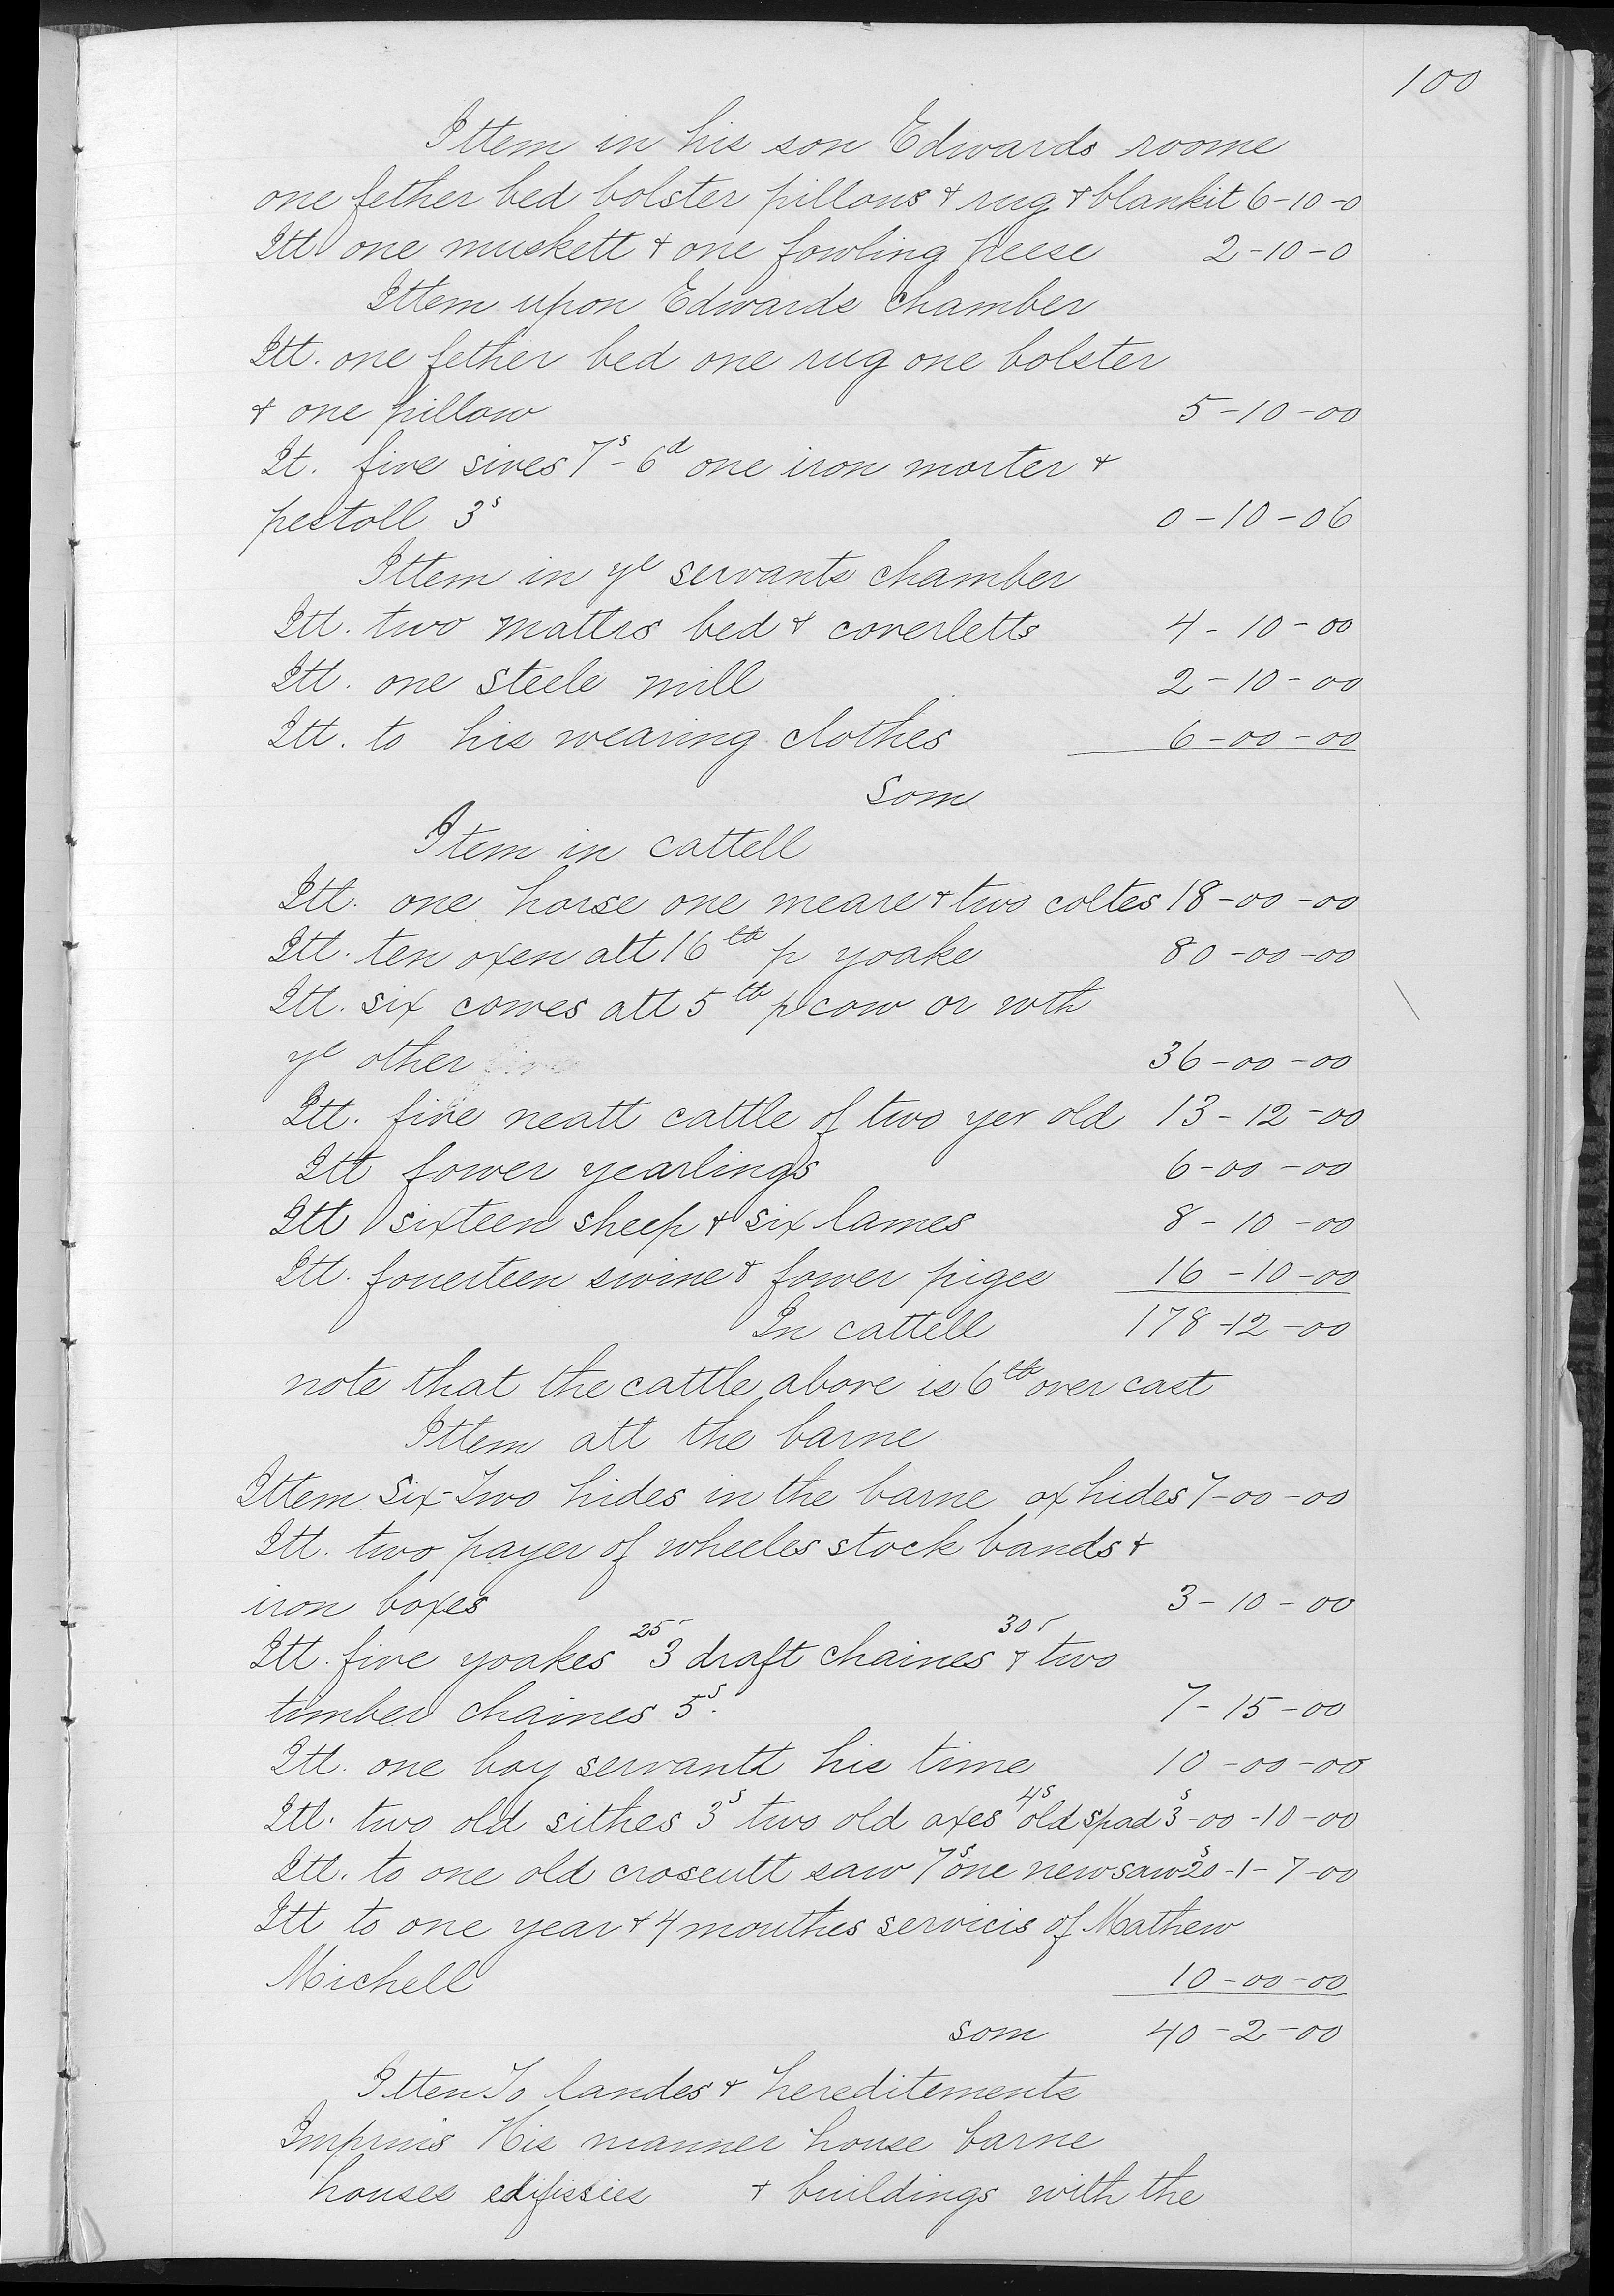 100
Ittem in his son Edwards roome
one fether bed bolster pillows & rug & blankit 6-10-0
Itt one muskett & one fowling peese 2-10-0
Ittem upon Edwards chamber
Itt. one fether bed one rug one bolster
& one pillow 5-10-00
It. five sives 7s-6d one iron morter &
pestoll 3s 0-10-06
Ittem in ye servants chamber
Itt. two mattrs bed & coverletts 4-10-00
Itt. one steele mill 2-10-00
Itt. to his wearing clothes 6-00-00
Som
Item in cattell
Itt. one horse one meare & two coltes 18-00-00
Itt. ten oxen att 16lb p yoake 80-00-00
Itt. six cowes att 5lb p cow or wth
ye other 36-00-00
Itt. five neatt cattle of two yer old 13-12-00
Itt fower yearlings 6-00-00
Itt sixteen sheep & six lames 8-10-00
Itt. fouerteen swine & fower piges 16-10-00
In cattell 178-12-00
note that the cattle above is 6lb over cast
Ittem att the barne
Ittem Six-Two hides in the barne ox hides 7-00-00
Itt. two payer of wheeles stock bands &
iron boxes 3-10-00
Itt. five yoakes 25s 3 draft chaines 30s & two
timber chaines 5s. 7-15-00
Itt. one boy servantt his time 10-00-00
Itt. two old sithes 3s two old axes 4s old spad 3s-00-10-00
Itt. to one old croscutt saw 7s one new saw 20s-1-7-00
Itt to one year & 4 mouthes servicis of Mathew
Michell 10-00-00
som 40-2-00
Itten To landes & hereditements
Imprnis His manner house barne
houses edifissies & buildings with the